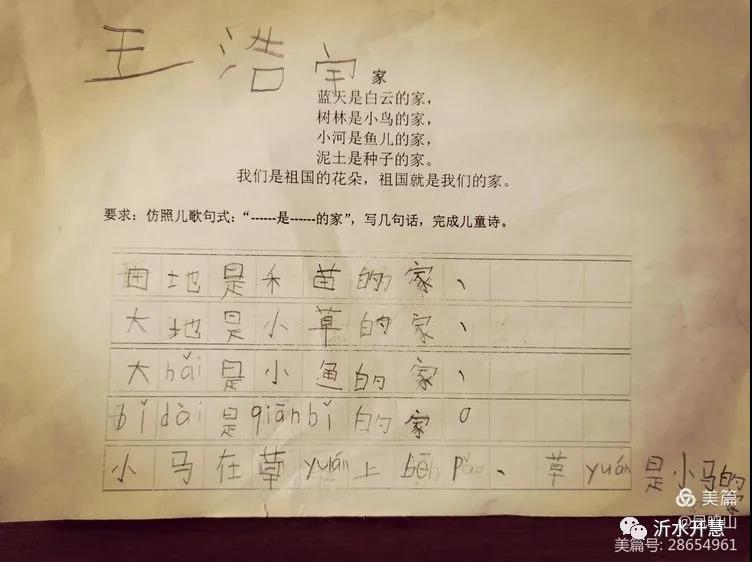 王浩宇
家
蓝天是白云的家，
树林是小鸟的家，
小河是鱼儿的家，
泥土是种子的家。
我们是祖国的花朵，祖国就是我们的家。
要求：仿照儿歌句式：“------是------的家”，写几句话，完成儿童诗。
田地是禾苗的家、
大地是小草的家、
大hǎi是小鱼的家、
bǐ dài是qiān bǐ的家。
小马在草yuán上bēn pǎo、草yuán是小马的家
美篇
沂水开慧
美篇号: 28654961